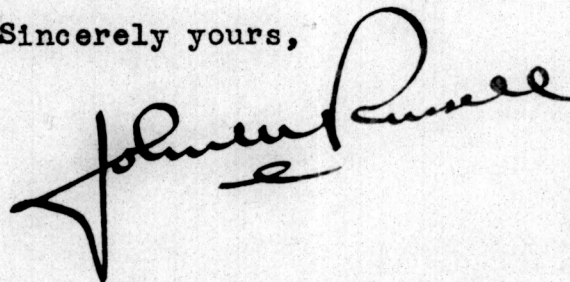 Sincerely yours,
John M Russell